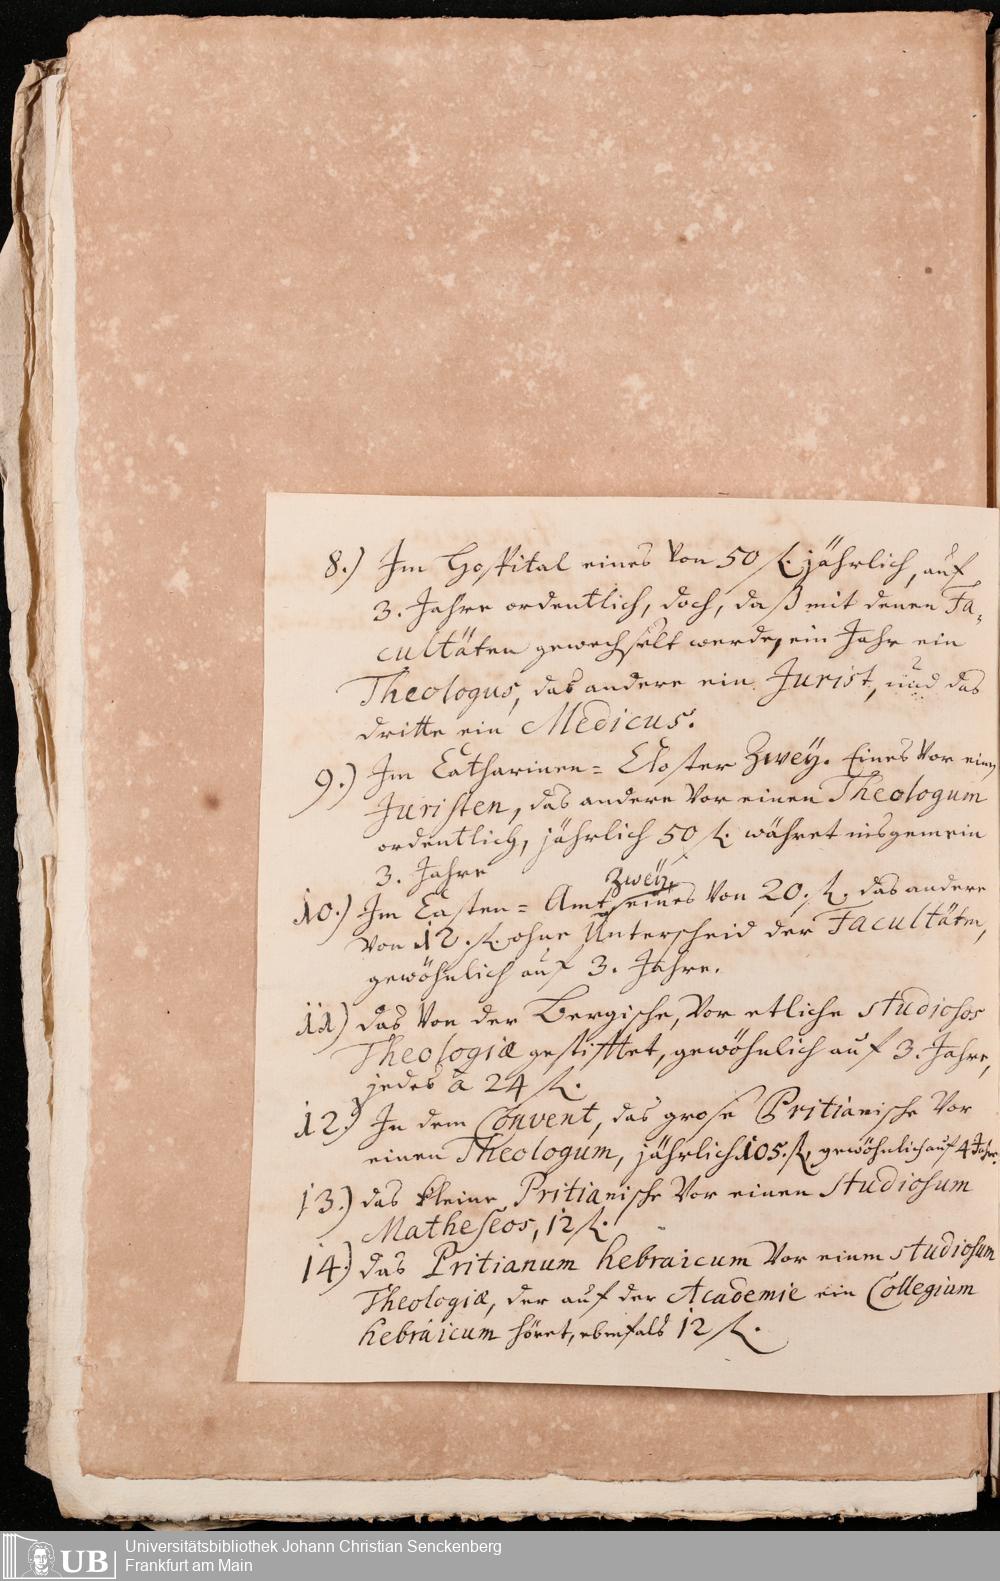 8.) Im Hospital eines von 50 fl. jährlich, auf
3. Jahre ordentlich, doch, daß mit denen Fa-
cultäten gewechselt werde, ein Jahr ein
Theologus, das andere ein Jurist, und das
dritte ein Medicus.
9.) Im Catharinen= Closter Zwey. Eines vor einen
Juristen, das andere vor einen Theologum
ordentlich, jährlich 50 fl. währet insgemein
3. Jahre
zwey,
10.) Im Casten= Amt eines von 20. fl. das andere
von 12. fl. ohne Unterscheid der Facultäten,
gewöhnlich auf 3. Jahre.
11) das von der Bergische, vor etliche studiosos
Theologiæ gestifftet, gewöhnlich auf 3. Jahre,
jedes â 24 fl.
12.) In dem Convent, das grose Pritianische vor
einen Theologum, jährlich 105. fl. gewöhnlich auf 4 Jahre.
13.) das kleine Pritianische vor einen Studiosum
Matheseos, 12 fl.
14.) das Pritianum hebraicum vor einen studiosum
Theologiæ, der auf der Academie ein Collegium
hebraicum höret, ebenfals 12 fl.
UB
Universitätsbibliothek Johann Christian Senckenberg
Frankfurt am Main